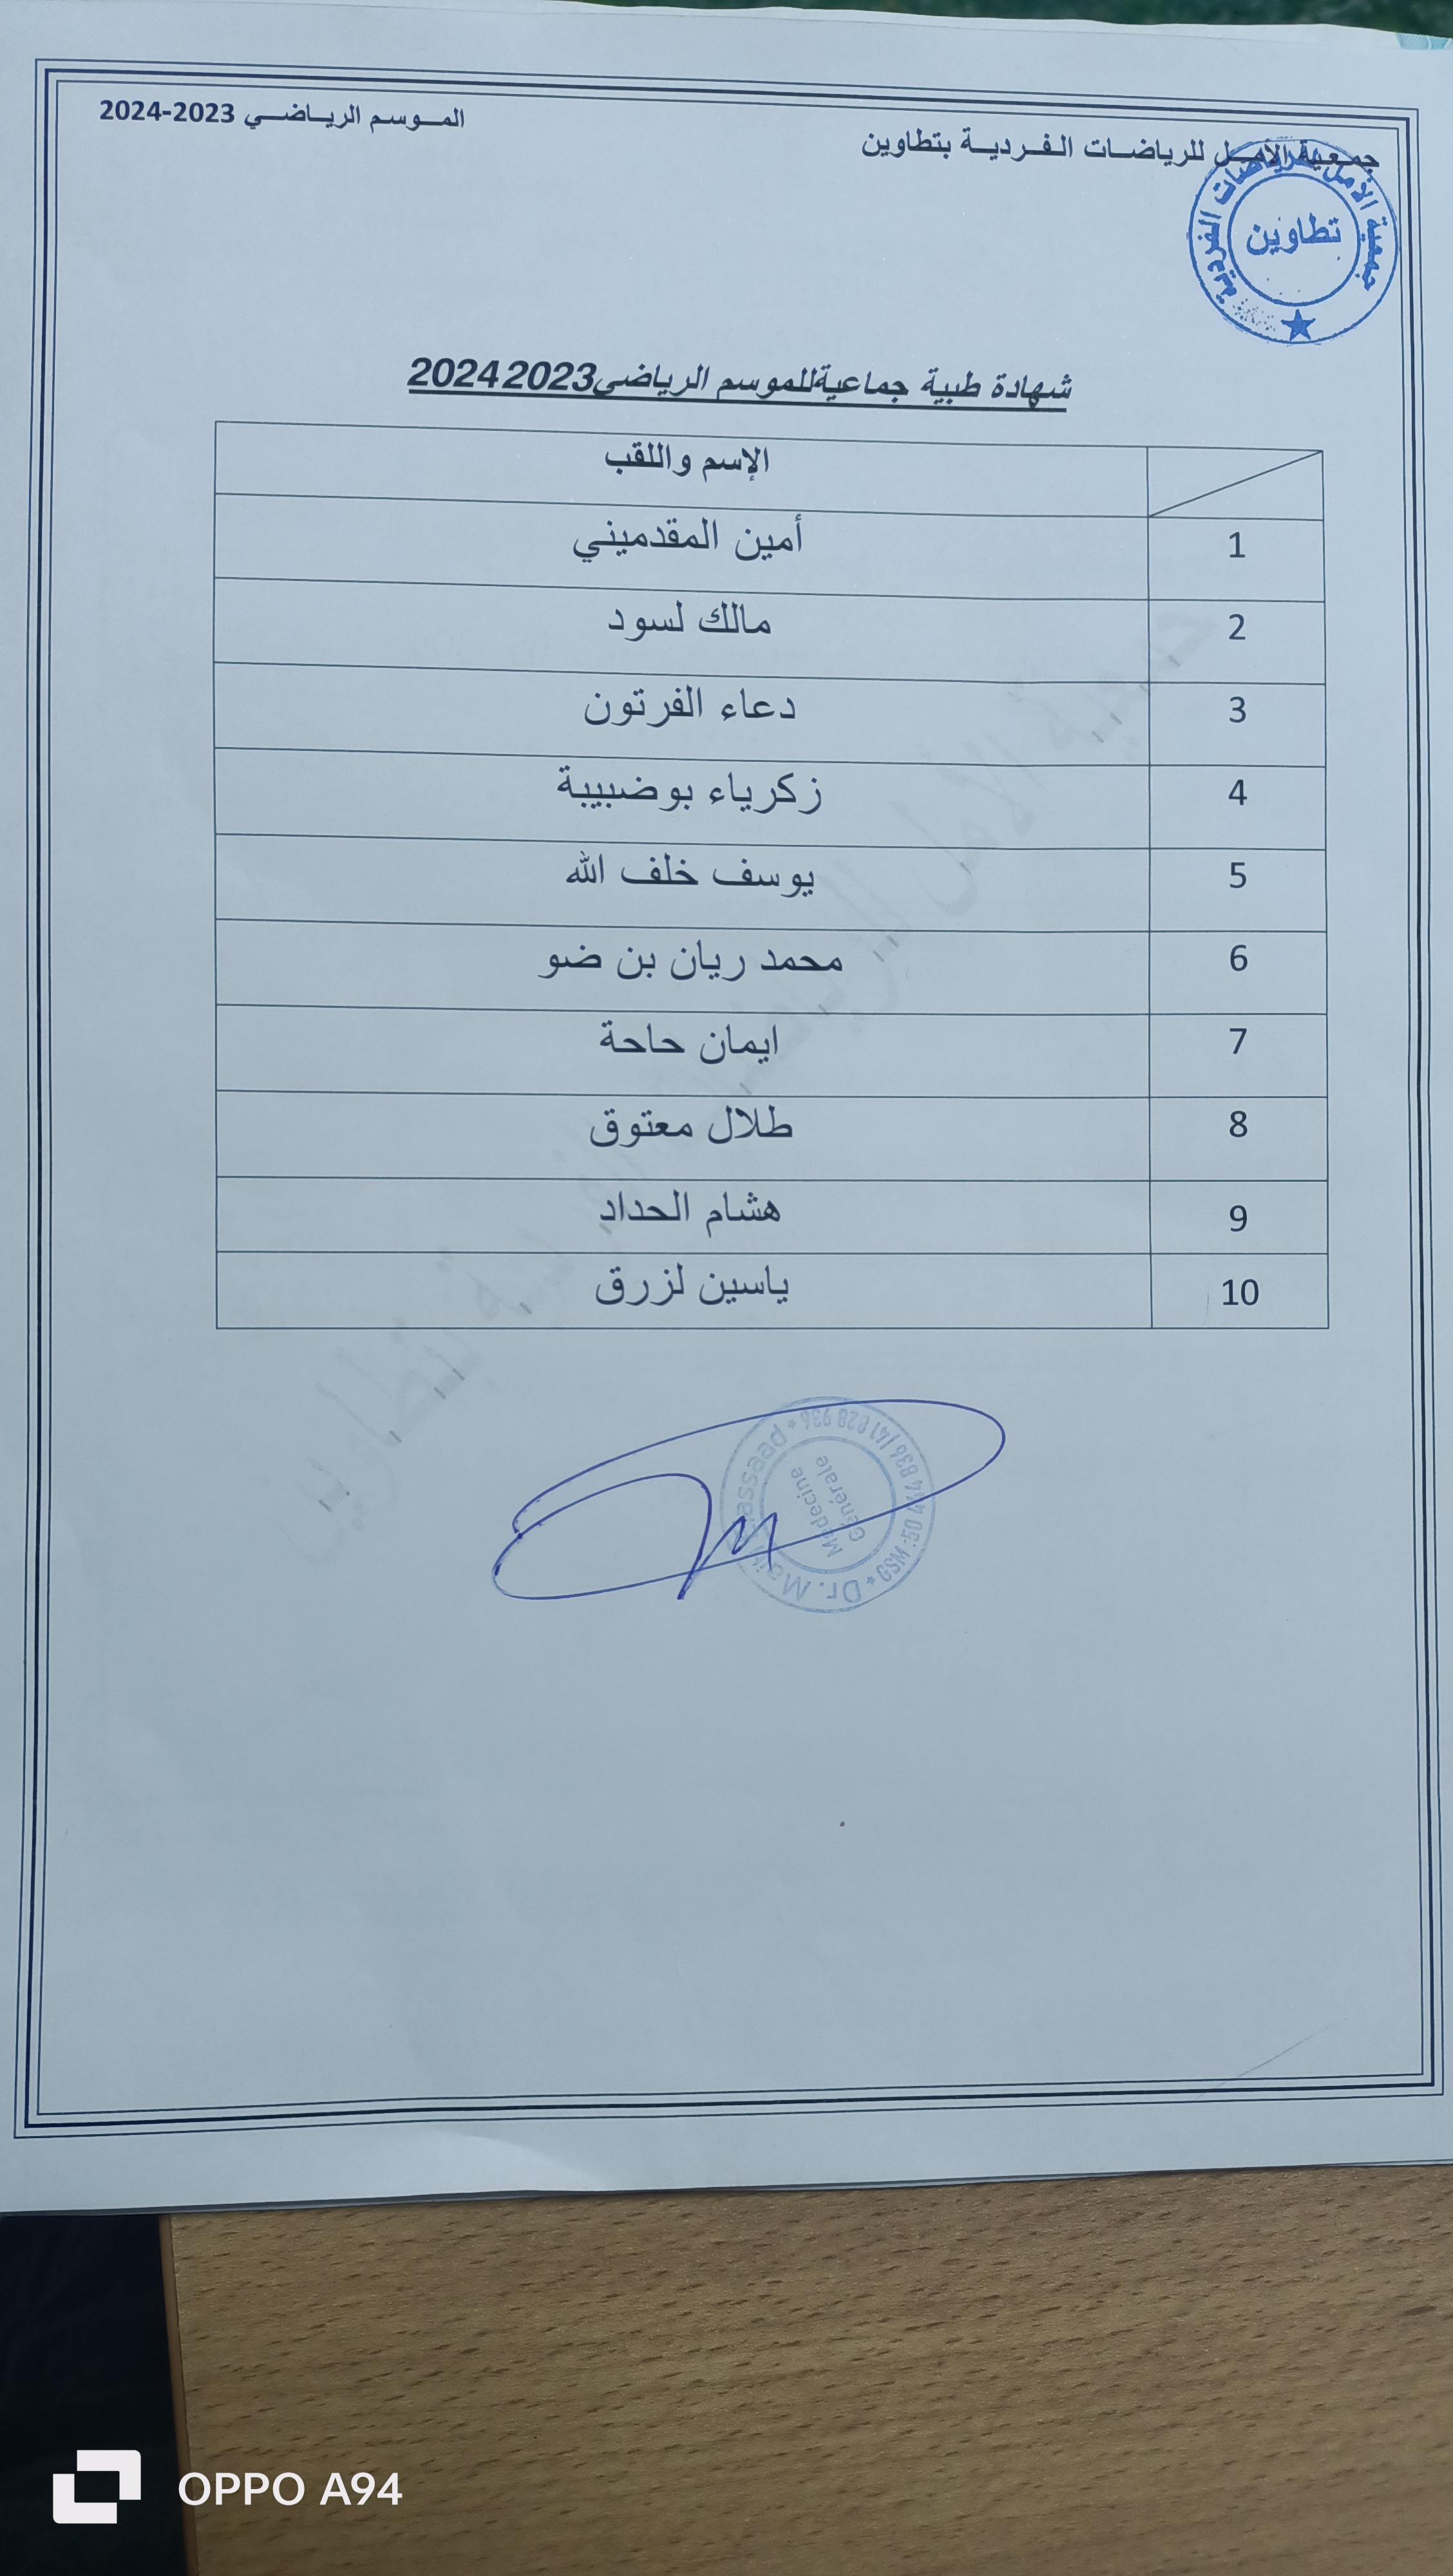 جمعية الأمل للرياضات الفردية بتطاوين
الموسم الرياضي 2023-2024
جمعية الأمل للرياضات الفردية
تطاوين
شهادة طبية جماعيةللموسم الرياضي20232024
الإسم واللقب
1 أمين المقدميني
2 مالك لسود
3 دعاء الفرتون
4 زكرياء بوضبيبة
5 يوسف خلف الله
6 محمد ريان بن ضو
7 ايمان حاحة
8 طلال معتوق
9 هشام الحداد
10 ياسين لزرق
جمعية الأمل للرياضات الفردية بتطاوين
Médecine
Générale
GSM :50 444 836 / 41 028 936
OPPO A94